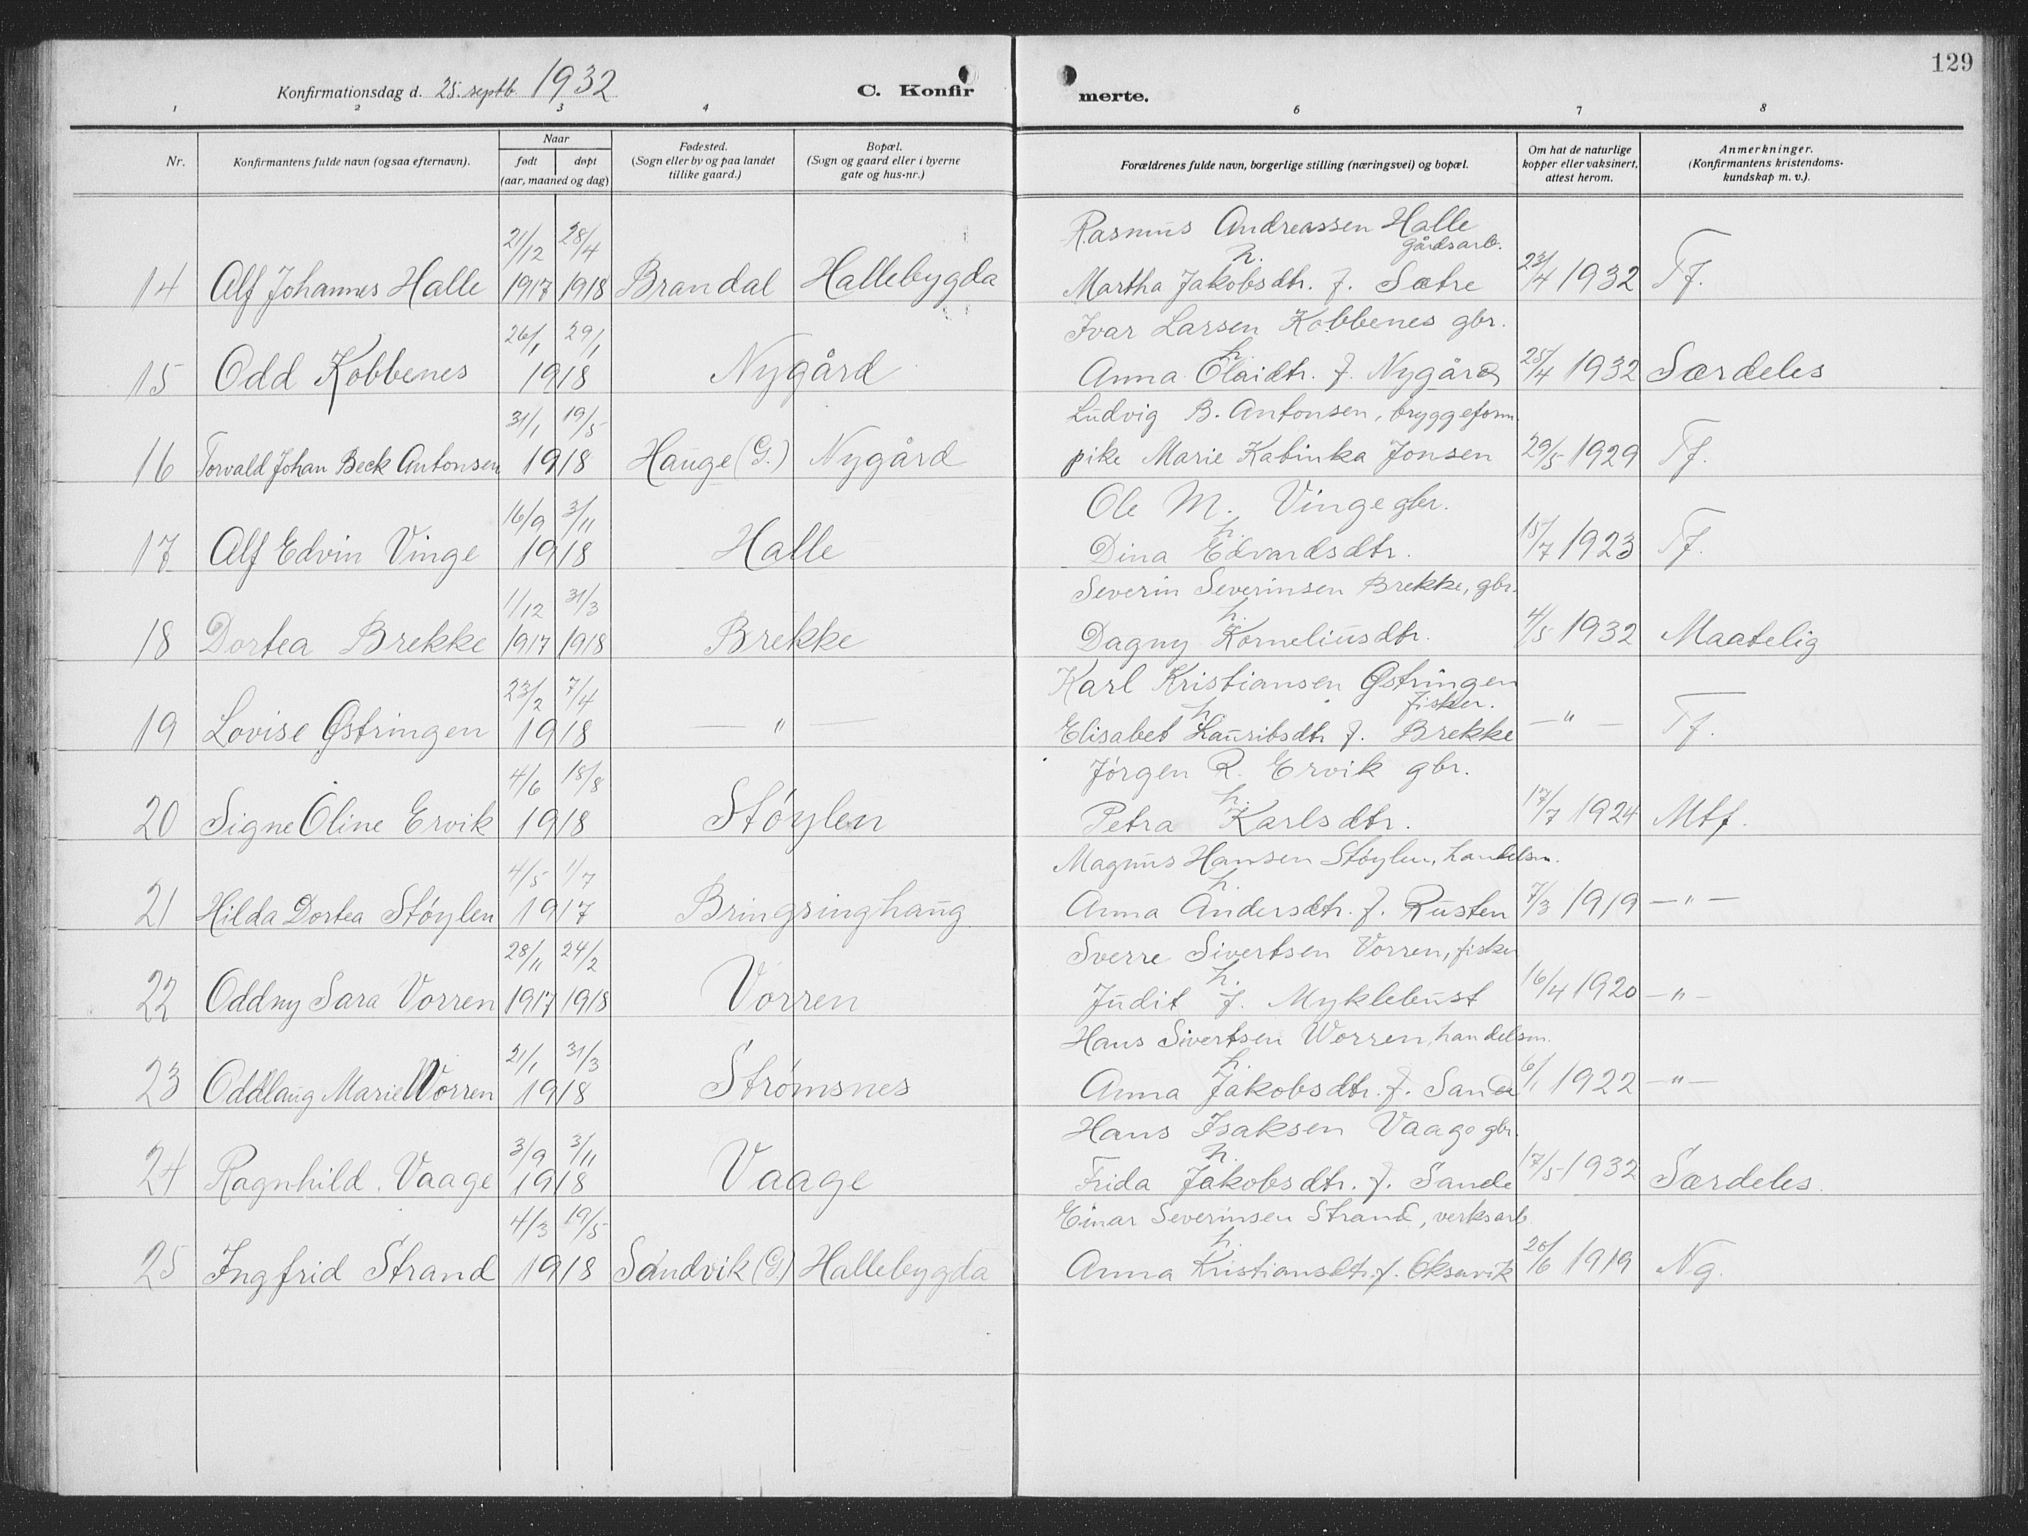 129
Konfirmationsdag d. 25. septb. 1932
C. Konfirmerte.
1 2 3 4 6 7 8
Nr.
Konfirmantens fulde navn (ogsaa efternavn).
Naar
født døpt
(aar, maaned og dag)
Fødested.
(Sogn eller by og paa landet
tillike gaard.)
Bopæl.
(Sogn og gaard eller i byerne
gate og hus-nr.)
Forældrenes fulde navn, borgerlige stilling (næringsvei) og bopæl.
Om hat de naturlige
kopper eller vaksinert,
attest herom.
Anmerkninger.
(Konfirmantens kristendoms-
kundskap m. v.).
21/12 28/4 Rasmus Andreassen Halle
gårdsarb.
h.
14 Alf Johannes Halle 1917 1918 Brandal Hallebygda Martha Jakobsdtr. f. Sætre 23/4 1932 Tf.
26/1 29/1 Ivar Larsen Kobbenes gbr.
h.
15 Odd Kobbenes 1918 Nygård Anna Olaidtr. f. Nygård 25/4 1932 Særdeles
31/1 19/5 Ludvig B. Antonsen, bryggeform.
16 Torvald Johan Beck Antonsen 1918 Hauge (G.) Nygård pike Marie Kabinka Jonsen 29/5 1929 Tf.
16/9 3/11 Ole M. Vinge gbr.
h.
17 Alf Edvin Vinge 1918 Halle Dina Edvardsdtr. 15/7 1923 Tf.
1/12 31/3 Severin Severinsen Brekke, gbr.
h.
18 Dortea Brekke 1917 1918 Brekke Dagny Korneliusdtr. 4/5 1932 Maatelig
23/2 7/4 Karl Kristiansen Østringen
fisker.
h.
19 Lovise Østringen 1918 — " — Elisabet Lauritsdtr f. Brekke — " — Tf.
4/6 18/8 Jørgen R. Ervik gbr.
h.
20 Signe Oline Ervik 1918 Støylen Petra Karlsdtr. 17/7 1924 Mtf.
4/5 1/7 Magnus Hansen Støylen, handelsm.
h.
21 Hilda Dortea Støylen 1917 Bringsinghaug Anna Andersdtr. f. Rusten 7/3 1919 — " —
28/11 24/2 Sverre Sivertsen Vorren, fisker
h.
22 Oddny Sara Vorren 1917 1918 Vorren Judit f. Myklebust 16/4 1920 — " —
21/1 31/3 Hans Sivertsen Worren, handelsm.
h.
23 Oddlaug Marie Worren 1918 Strømsnes Anna Jakobsdtr. f. Sande 6/1 1922 — " —
3/9 3/11 Hans Isaksen Vaage gbr.
h.
24 Ragnhild Vaage 1918 Vaage Frida Jakobsdtr. f. Sande 17/5 1932 Særdeles.
4/3 19/5 Einar Severinsen Strand, verksarb
h.
25 Ingfrid Strand 1918 Sandvik (G) Hallebygda Anna Kristiansdtr. f. Oksavik 20/6 1919 Ng.